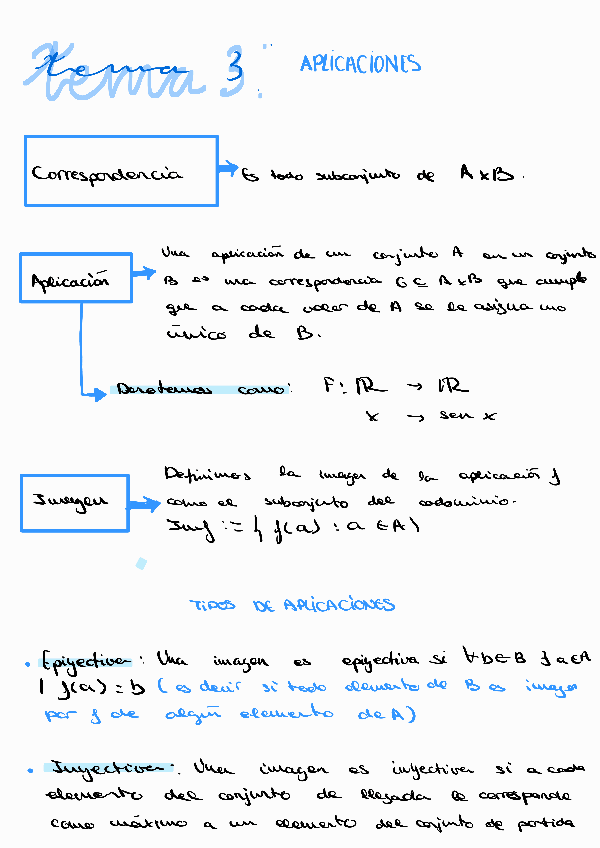 tema 3: APLICACIONES
Correspondencia → Es todo subconjunto de A x B.
Una aplicación de un conjunto A en un conjunto
Aplicación → B es una correspondencia G ⊆ A x B que cumple
que a cada valor de A se le asigna uno
único de B.
Denotemos como: F: ℝ → ℝ
x → sen x
Definimos la imagen de la aplicación f
Imagen → como el subconjunto del codominio.
Im f := { f(a) : a ∈ A}
TIPOS DE APLICACIONES
• Epiyectiva: Una imagen es epiyectiva si ∀b∈B ∃ a∈A
| f(a) = b (es decir si todo elemento de B es imagen
por f de algún elemento de A)
• Inyectiva: Una imagen es inyectiva si a cada
elemento del conjunto de llegada le corresponde
como máximo a un elemento del conjunto de partida